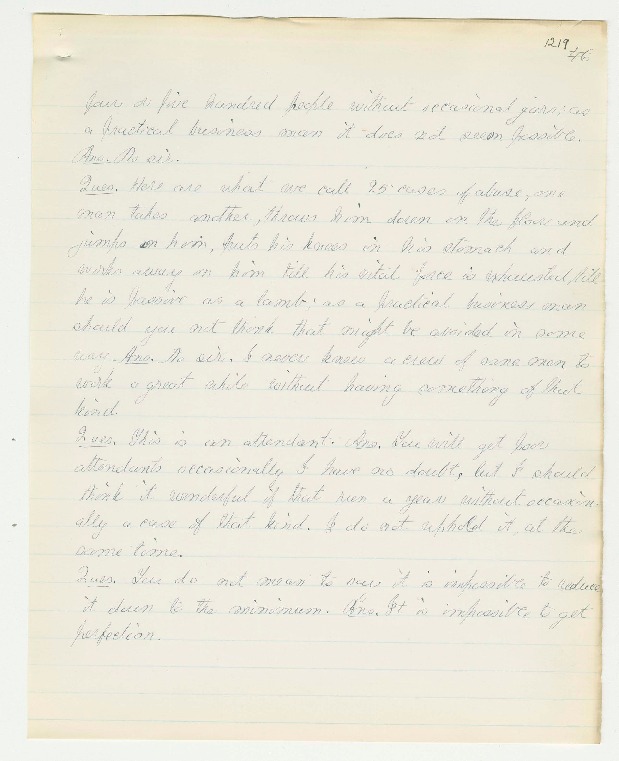 1219
46
four or five hundred people without occasional jars; as
a practical business man it does not seem possible.
Ans. No sir.
Ques. Here are what we call 25 cases of abuse, one
man takes another, throws him down on the floor and
jumps on him, puts his knees in his stomach and
works away on him till his vital force is exhausted, till
he is passive as a lamb; as a practical business man
should you not think that might be avoided in some
way. Ans. No sir. I never knew a crew of sane men to
work a great while without having something of that
kind.
Ques. This is an attendant. Ans. You will get poor
attendants occasionally I have no doubt, but I should
think it wonderful if that run a year without occasion-
ally a case of that kind. I do not uphold it at the
same time.
Ques. You do not mean to say it is impossible to reduce
it down to the minimum. Ans. It is impossible to get
perfection.